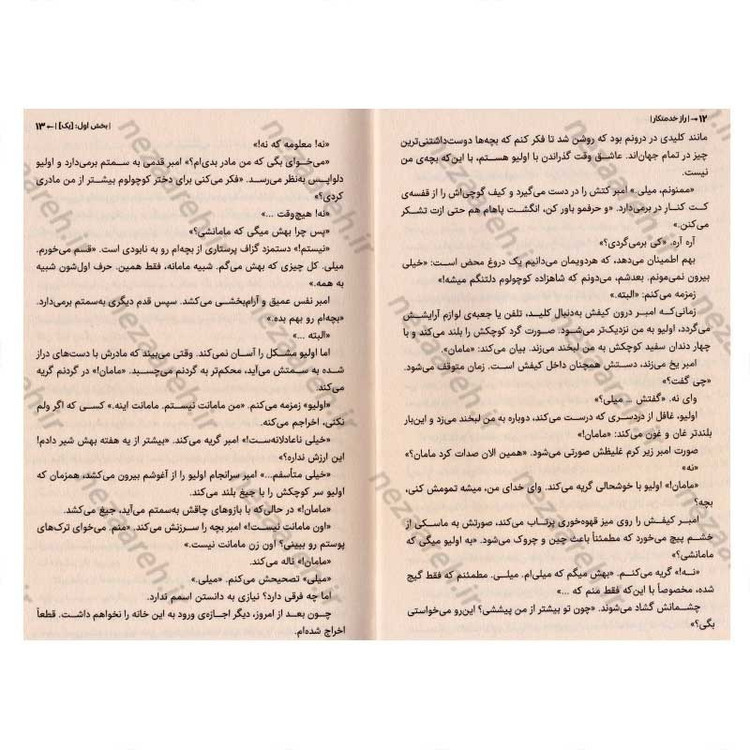 ۱۲ ← | راز خدمتکار |
مانند کلیدی در درونم بود که روشن شد تا فکر کنم که بچه‌ها دوست‌داشتنی‌ترین
چیز در تمام جهان‌اند. عاشق وقت گذراندن با اولیو هستم، با این‌که بچه‌ی من
نیست.
«ممنونم، میلی.» امبر کتش را در دست می‌گیرد و کیف گوچی‌اش را از قفسه‌ی
کت کنار در برمی‌دارد. «و حرفمو باور کن، انگشت پاهام هم حتی ازت تشکر
می‌کنن.»
آره آره. «کی برمی‌گردی؟»
بهم اطمینان می‌دهد، که هردویمان می‌دانیم یک دروغ محض است: «خیلی
بیرون نمی‌مونم. بعدشم، می‌دونم که شاهزاده کوچولوم دلتنگم میشه!»
زمزمه می‌کنم: «البته.»
زمانی‌که امبر درون کیفش به‌دنبال کلید، تلفن یا جعبه‌ی لوازم آرایشش
می‌گردد، اولیو به من نزدیک‌تر می‌شود. صورت گرد کوچکش را بلند می‌کند و با
چهار دندان سفید کوچکش به من لبخند می‌زند. بیان می‌کند: «مامان».
امبر یخ می‌زند، دستش همچنان داخل کیفش است. زمان متوقف می‌شود.
«چی گفت؟»
وای نه. «گفتش ... میلی؟»
اولیو، غافل از دردسری که درست می‌کند، دوباره به من لبخند می‌زد و این‌بار
بلندتر غان و غون می‌کند: «مامان!»
صورت امبر زیر کرم غلیظش صورتی می‌شود. «همین الان صدات کرد مامان؟»
«نه»
«مامان!» اولیو با خوشحالی گریه می‌کند. وای خدای من، میشه تمومش کنی،
بچه؟
امبر کیفش را روی میز قهوه‌خوری پرتاب می‌کند، صورتش به ماسکی از
خشم پیچ می‌خورد که مطمئناً باعث چین و چروک می‌شود. «به اولیو میگی که
مامانشی؟»
«نه!» گریه می‌کنم. «بهش میگم که میلی‌ام. میلی. مطمئنم که فقط گیج
شده، مخصوصاً با این‌که فقط منم که ...»
چشمانش گشاد می‌شوند. «چون تو بیشتر از من پیششی؟ این‌رو می‌خواستی
بگی؟»
| بخش اول: [یک] | ← ۱۳
«نه! معلومه که نه!»
«می‌خوای بگی که من مادر بدی‌ام؟» امبر قدمی به سمتم برمی‌دارد و اولیو
دلواپس به‌نظر می‌رسد. «فکر می‌کنی برای دختر کوچولوم بیشتر از من مادری
کردی؟»
«نه! هیچ‌وقت ...»
«پس چرا بهش میگی که مامانشی؟»
«نیستم!» دستمزد گزاف پرستاری از بچه‌ام رو به نابودی است. «قسم می‌خورم.
میلی. کل چیزی که بهش می‌گم. شبیه مامانه، فقط همین. حرف اول‌شون شبیه
به همه.»
امبر نفس عمیق و آرام‌بخشی می‌کشد. سپس قدم دیگری به‌سمتم برمی‌دارد.
«بچه‌ام رو بهم بده.»
«البته ...»
اما اولیو مشکل را آسان نمی‌کند. وقتی می‌بیند که مادرش با دست‌های دراز
شده به سمتش می‌آید، محکم‌تر به گردنم می‌چسبد. «مامان!» در گردنم گریه
می‌کند.
«اولیو» زمزمه می‌کنم. «من مامانت نیستم. مامانت اینه.» کسی که اگر ولم
نکنی، اخراجم می‌کنه.
«خیلی ناعادلانه‌ست!» امبر گریه می‌کند. «بیشتر از یه هفته بهش شیر دادم!
این ارزش نداره؟»
«خیلی متأسفم...» امبر سرانجام اولیو را از آغوشم بیرون می‌کشد، همزمان که
اولیو سر کوچکش را با جیغ بلند می‌کند.
«مامان!» در حالی‌که با بازوهای چاقش به‌سمتم می‌آید، جیغ می‌کشد.
«اون مامانت نیست!» امبر بچه را سرزنش می‌کند. «منم. می‌خوای ترک‌های
پوستم رو ببینی؟ اون زن مامانت نیست.»
«مامان!» ناله می‌کند.
«میلی» تصحیحش می‌کنم. «میلی.»
اما چه فرقی دارد؟ نیازی به دانستن اسمم ندارد.
چون بعد از امروز، دیگر اجازه‌ی ورود به این خانه را نخواهم داشت. قطعاً
اخراج شده‌ام.
nezaareh.ir